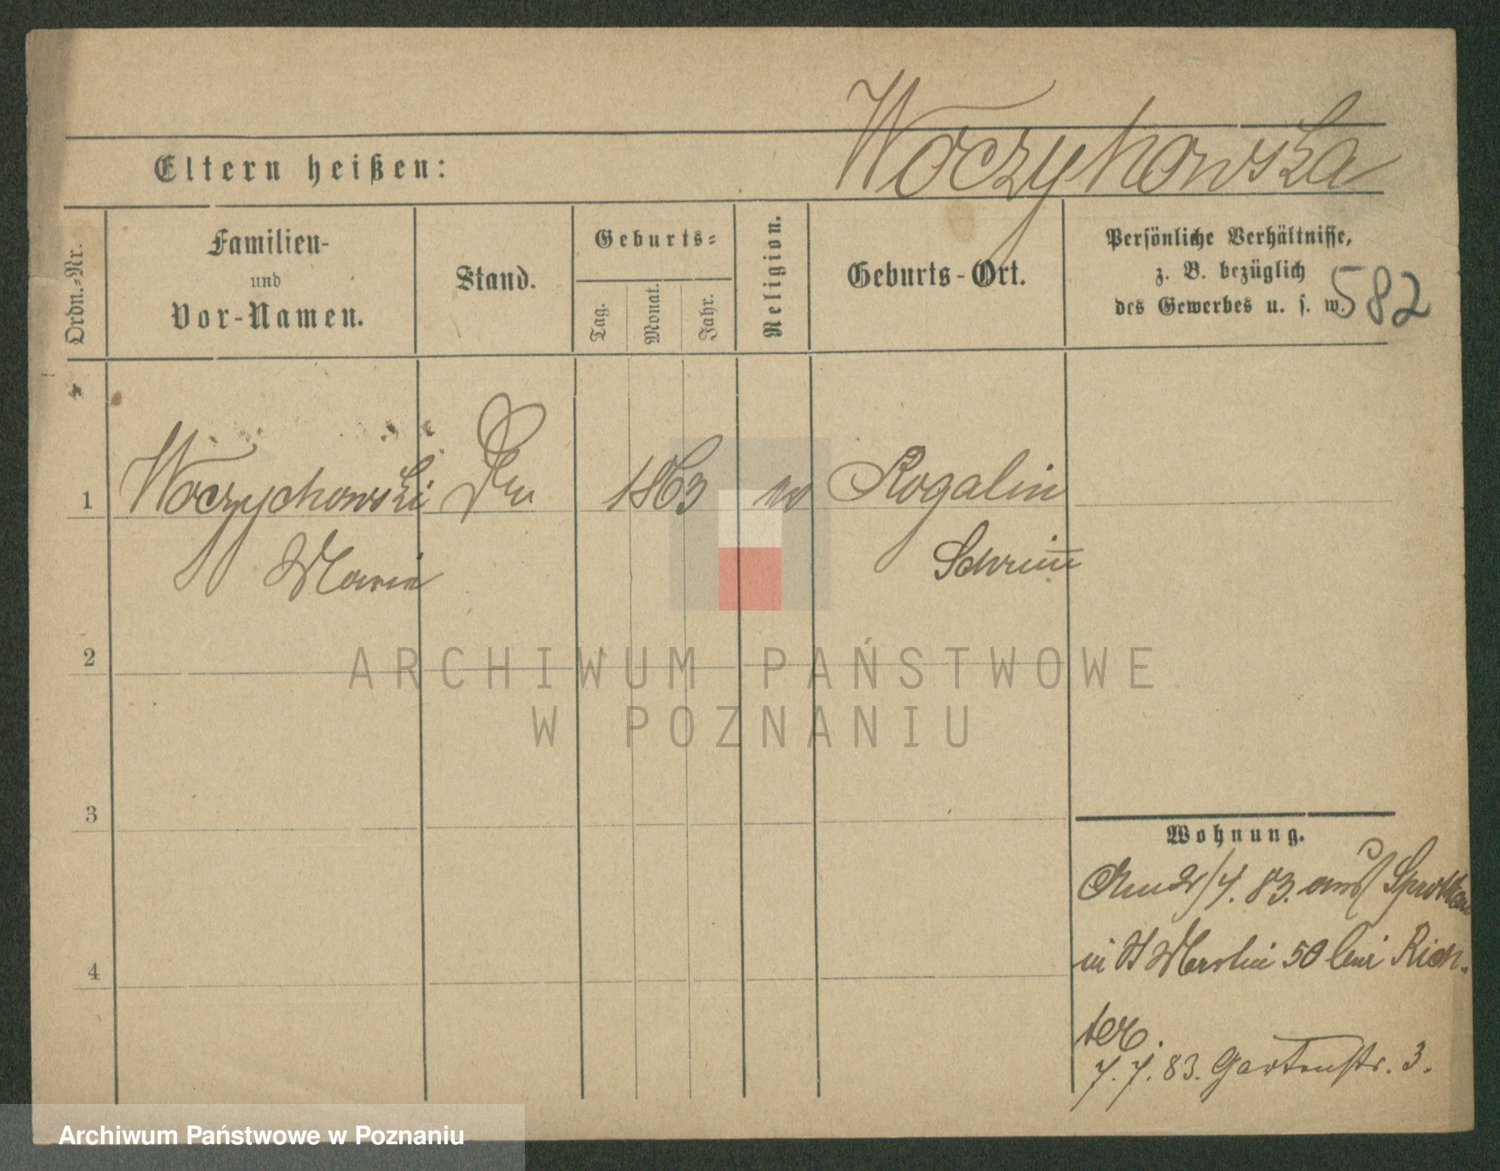 Woczykowska
Eltern heißen:
Ordn.-Nr.
Familien-
und
Vor-Namen.
Stand.
Geburts-
Tag.
Monat.
Jahr.
Religion.
Geburts-Ort.
Persönliche Verhältnisse,
z. B. bezüglich
des Gewerbes u. s. w.
582
1 Woczychowski 1863 Rogalin
Marie Schrim
2
ARCHIWUM PAŃSTWOWE
W POZNANIU
3
4
Wohnung.
/7. 83. aus
in St Martin 50 bei Rich-
ter.
7. 7. 83. Gartenstr. 3.
Archiwum Państwowe w Poznaniu